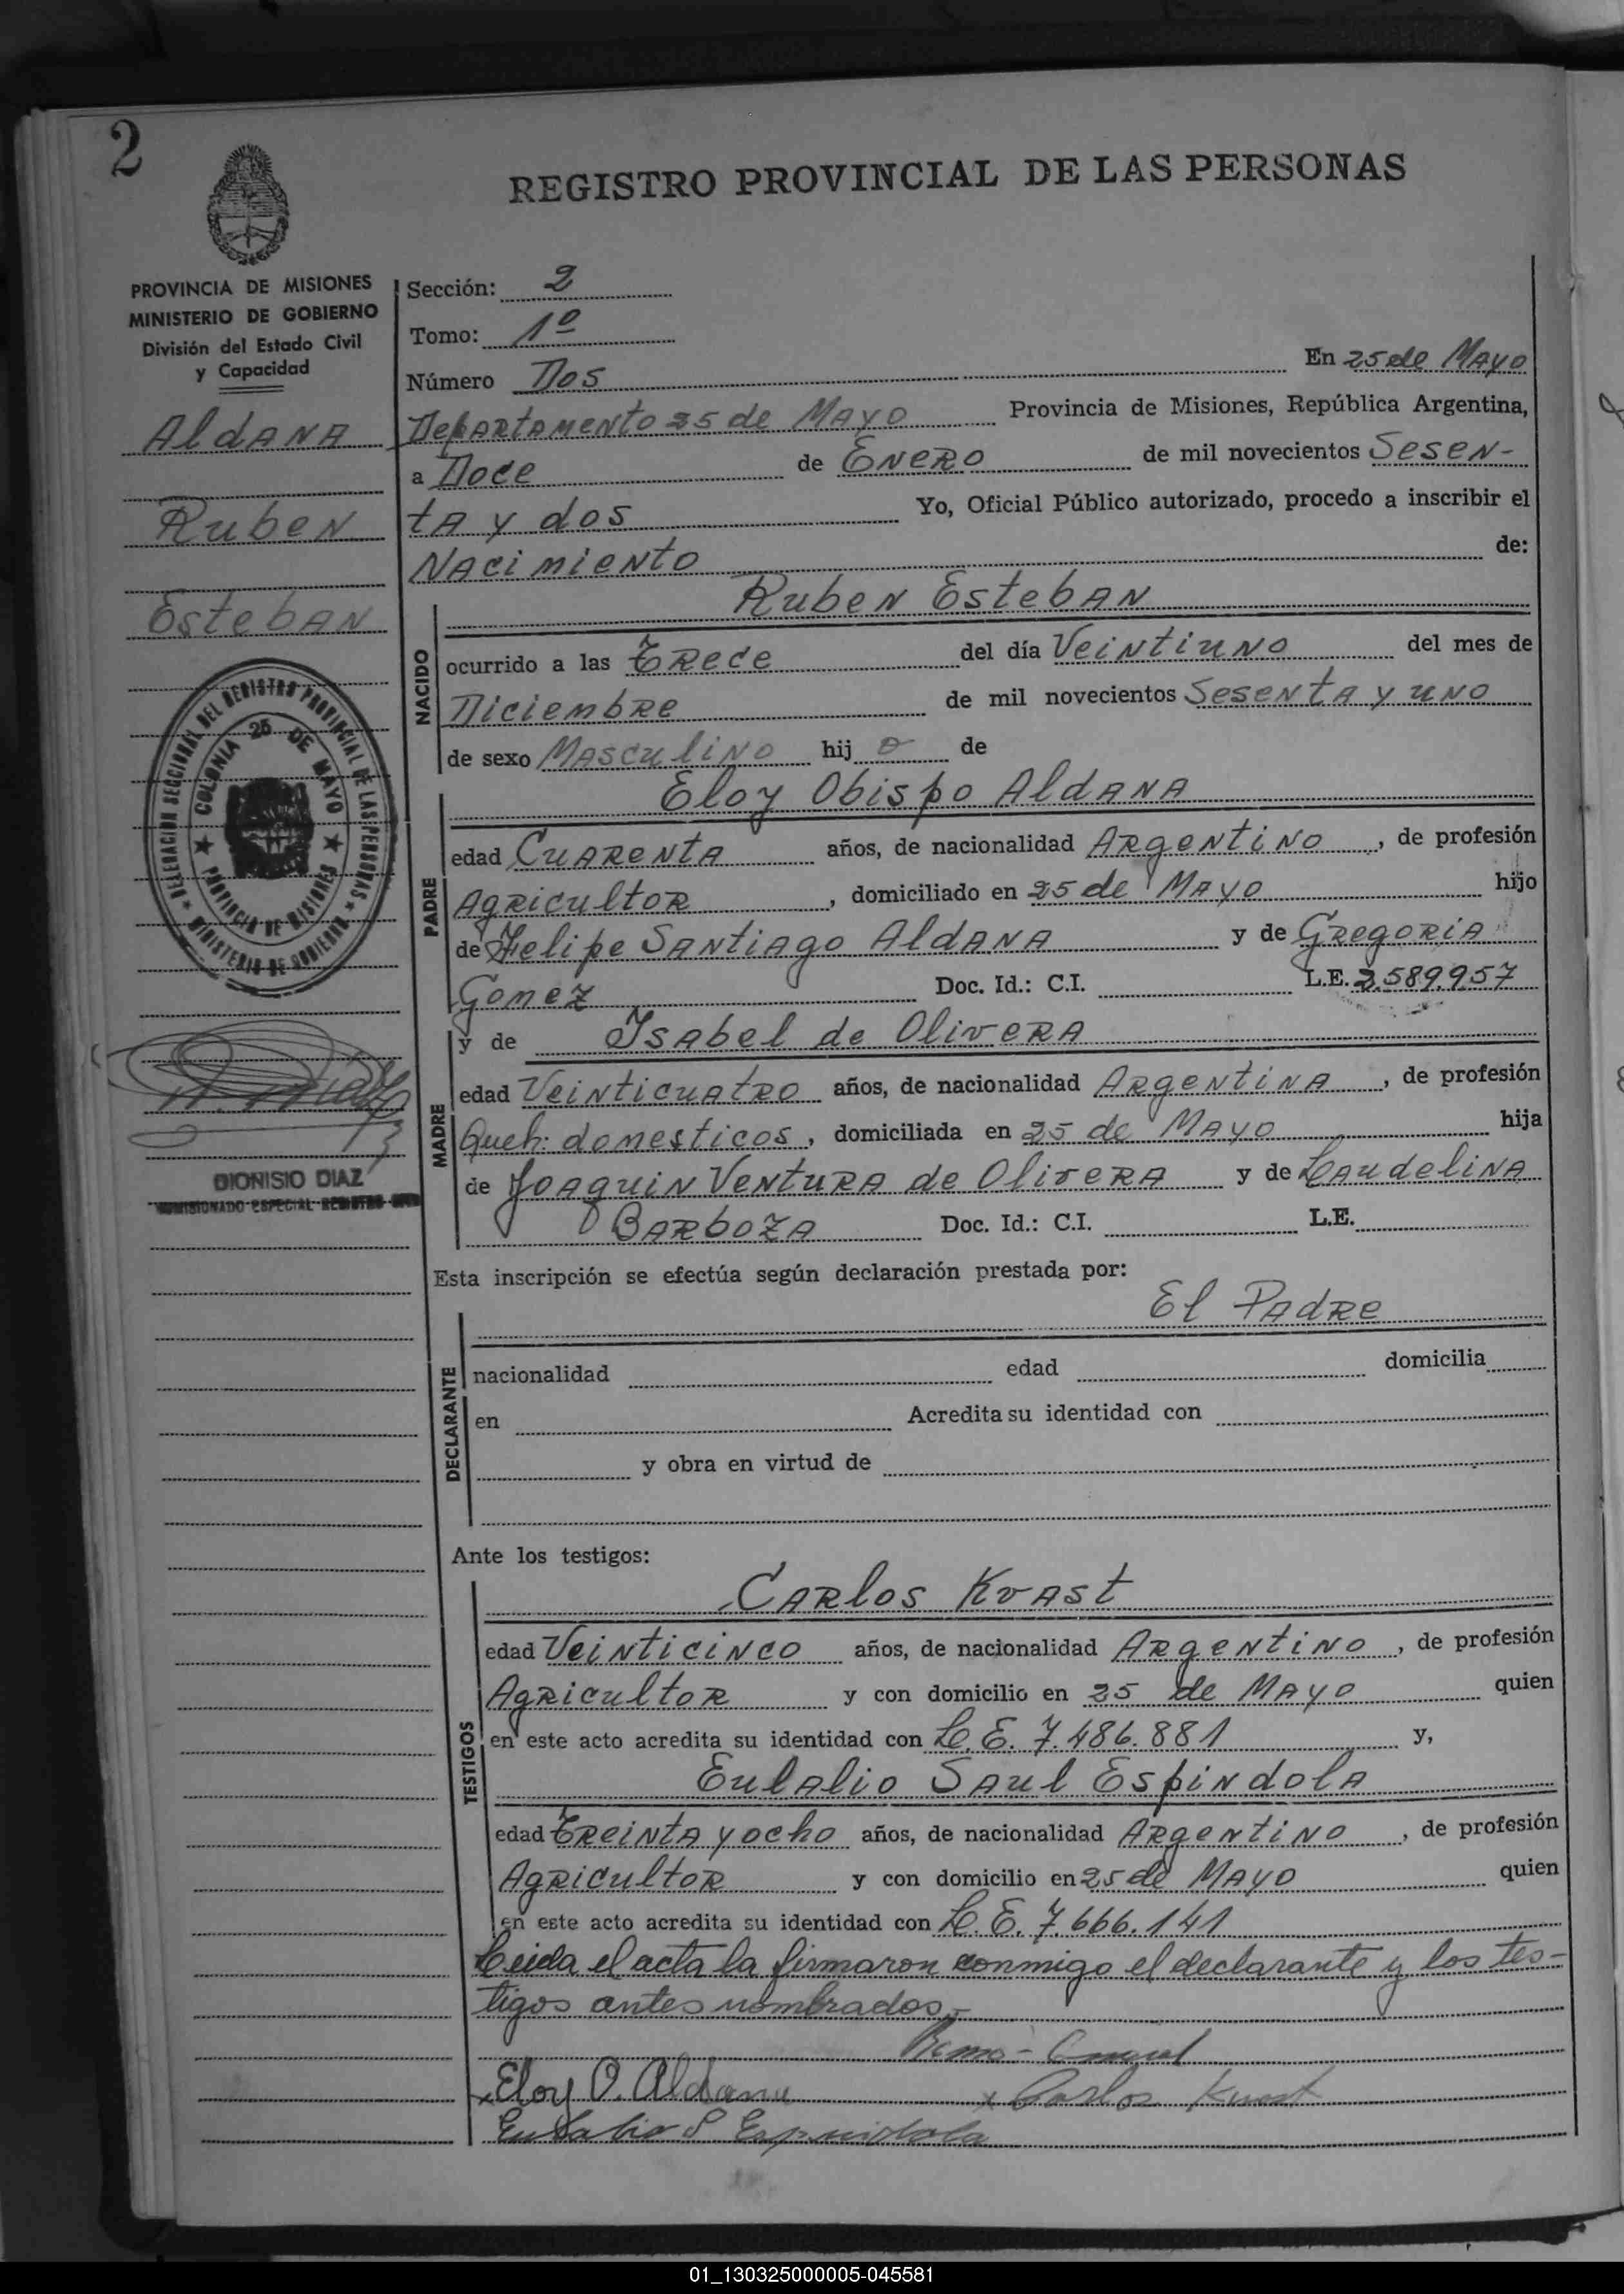 2
REGISTRO PROVINCIAL DE LAS PERSONAS
PROVINCIA DE MISIONES
MINISTERIO DE GOBIERNO
División del Estado Civil
y Capacidad
Aldana
Ruben
Esteban
DELEGACION SECCIONAL DEL REGISTRO PROVINCIAL DE LAS PERSONAS
★ MINISTERIO DE GOBIERNO ★
COLONIA 25 DE MAYO
★ PROVINCIA DE MISIONES ★
DIONISIO DIAZ
COMISIONADO ESPECIAL REGISTRO
Sección: 2
Tomo: 1º
Número Dos En 25 de Mayo
Departamento 25 de Mayo Provincia de Misiones, República Argentina,
a Doce de Enero de mil novecientos Sesen-
ta y dos Yo, Oficial Público autorizado, procedo a inscribir el
Nacimiento de:
NACIDO
Ruben Esteban
ocurrido a las Trece del día Veintiuno del mes de
Diciembre de mil novecientos Sesenta y uno
de sexo Masculino hijo de
PADRE
Eloy Obispo Aldana
edad Cuarenta años, de nacionalidad Argentino, de profesión
Agricultor, domiciliado en 25 de Mayo hijo
de Felipe Santiago Aldana y de Gregoria
Gomez Doc. Id.: C.I. L.E. 3.589.957
MADRE
y de Isabel de Olivera
edad Veinticuatro años, de nacionalidad Argentina, de profesión
Queh: domesticos, domiciliada en 25 de Mayo hija
de Joaquin Ventura de Olivera y de Laudelina
Barboza Doc. Id.: C.I. L.E.
Esta inscripción se efectúa según declaración prestada por:
DECLARANTE
El Padre
nacionalidad edad domicilia
en Acredita su identidad con
y obra en virtud de
Ante los testigos:
TESTIGOS
Carlos Kvast
edad Veinticinco años, de nacionalidad Argentino, de profesión
Agricultor y con domicilio en 25 de Mayo quien
en este acto acredita su identidad con L.E. 7.486.881 y,
Eulalio Saul Espindola
edad Treinta y ocho años, de nacionalidad Argentino, de profesión
Agricultor y con domicilio en 25 de Mayo quien
en este acto acredita su identidad con L.E. 7.666.141
Leida el acta la firmaron conmigo el declarante y los tes-
tigos antes nombrados.-
x Eloy O. Aldana x Carlos Kvast
Eulalio S Espindola
01_130325000005-045581